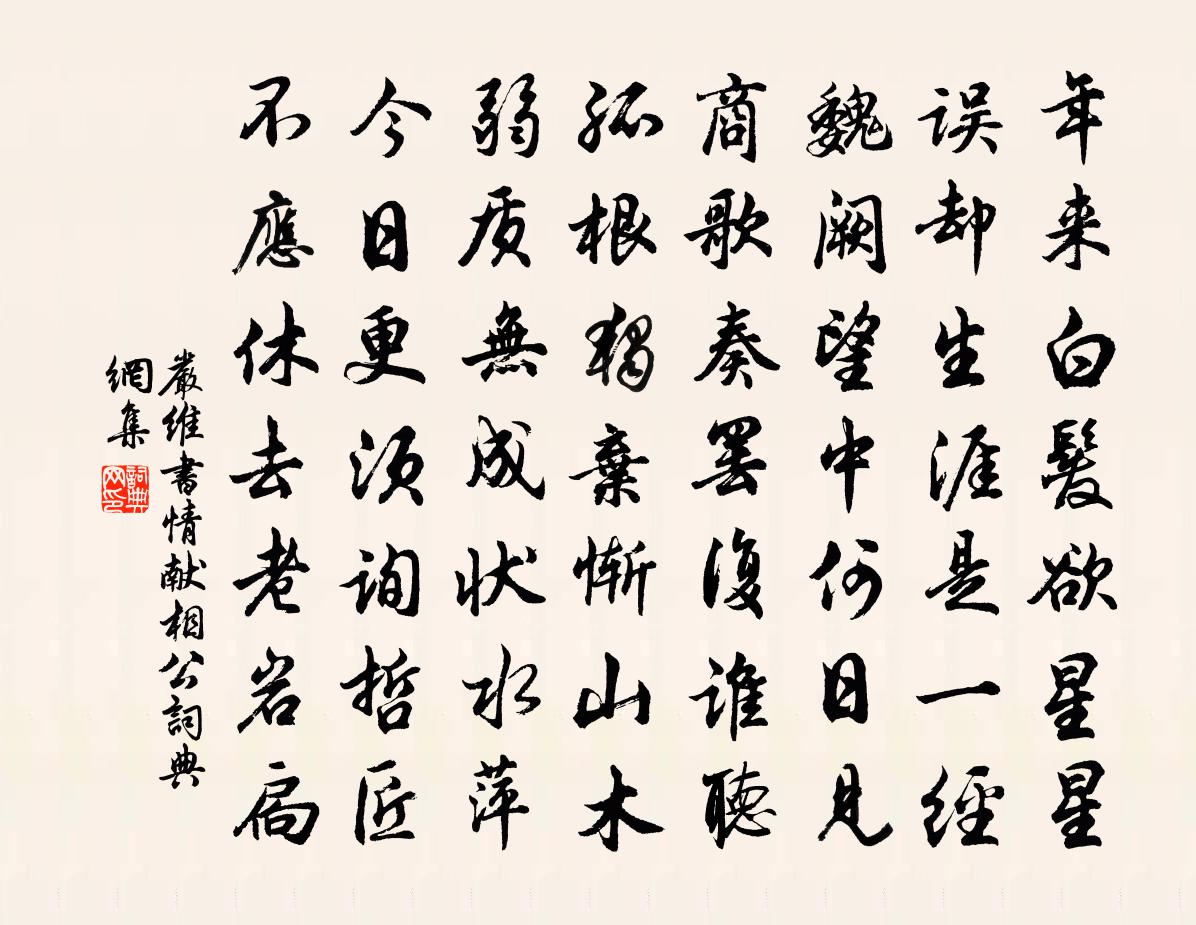 年来白髮欲星星
误却生涯是一经
魏阙望中何日見
商歌奏罢復谁聽
孤根独棄惭山木
弱质無成状水萍
今日更须询哲匠
不應休去老岩扃
嚴维書情献相公詞典
網集
詞典
网印